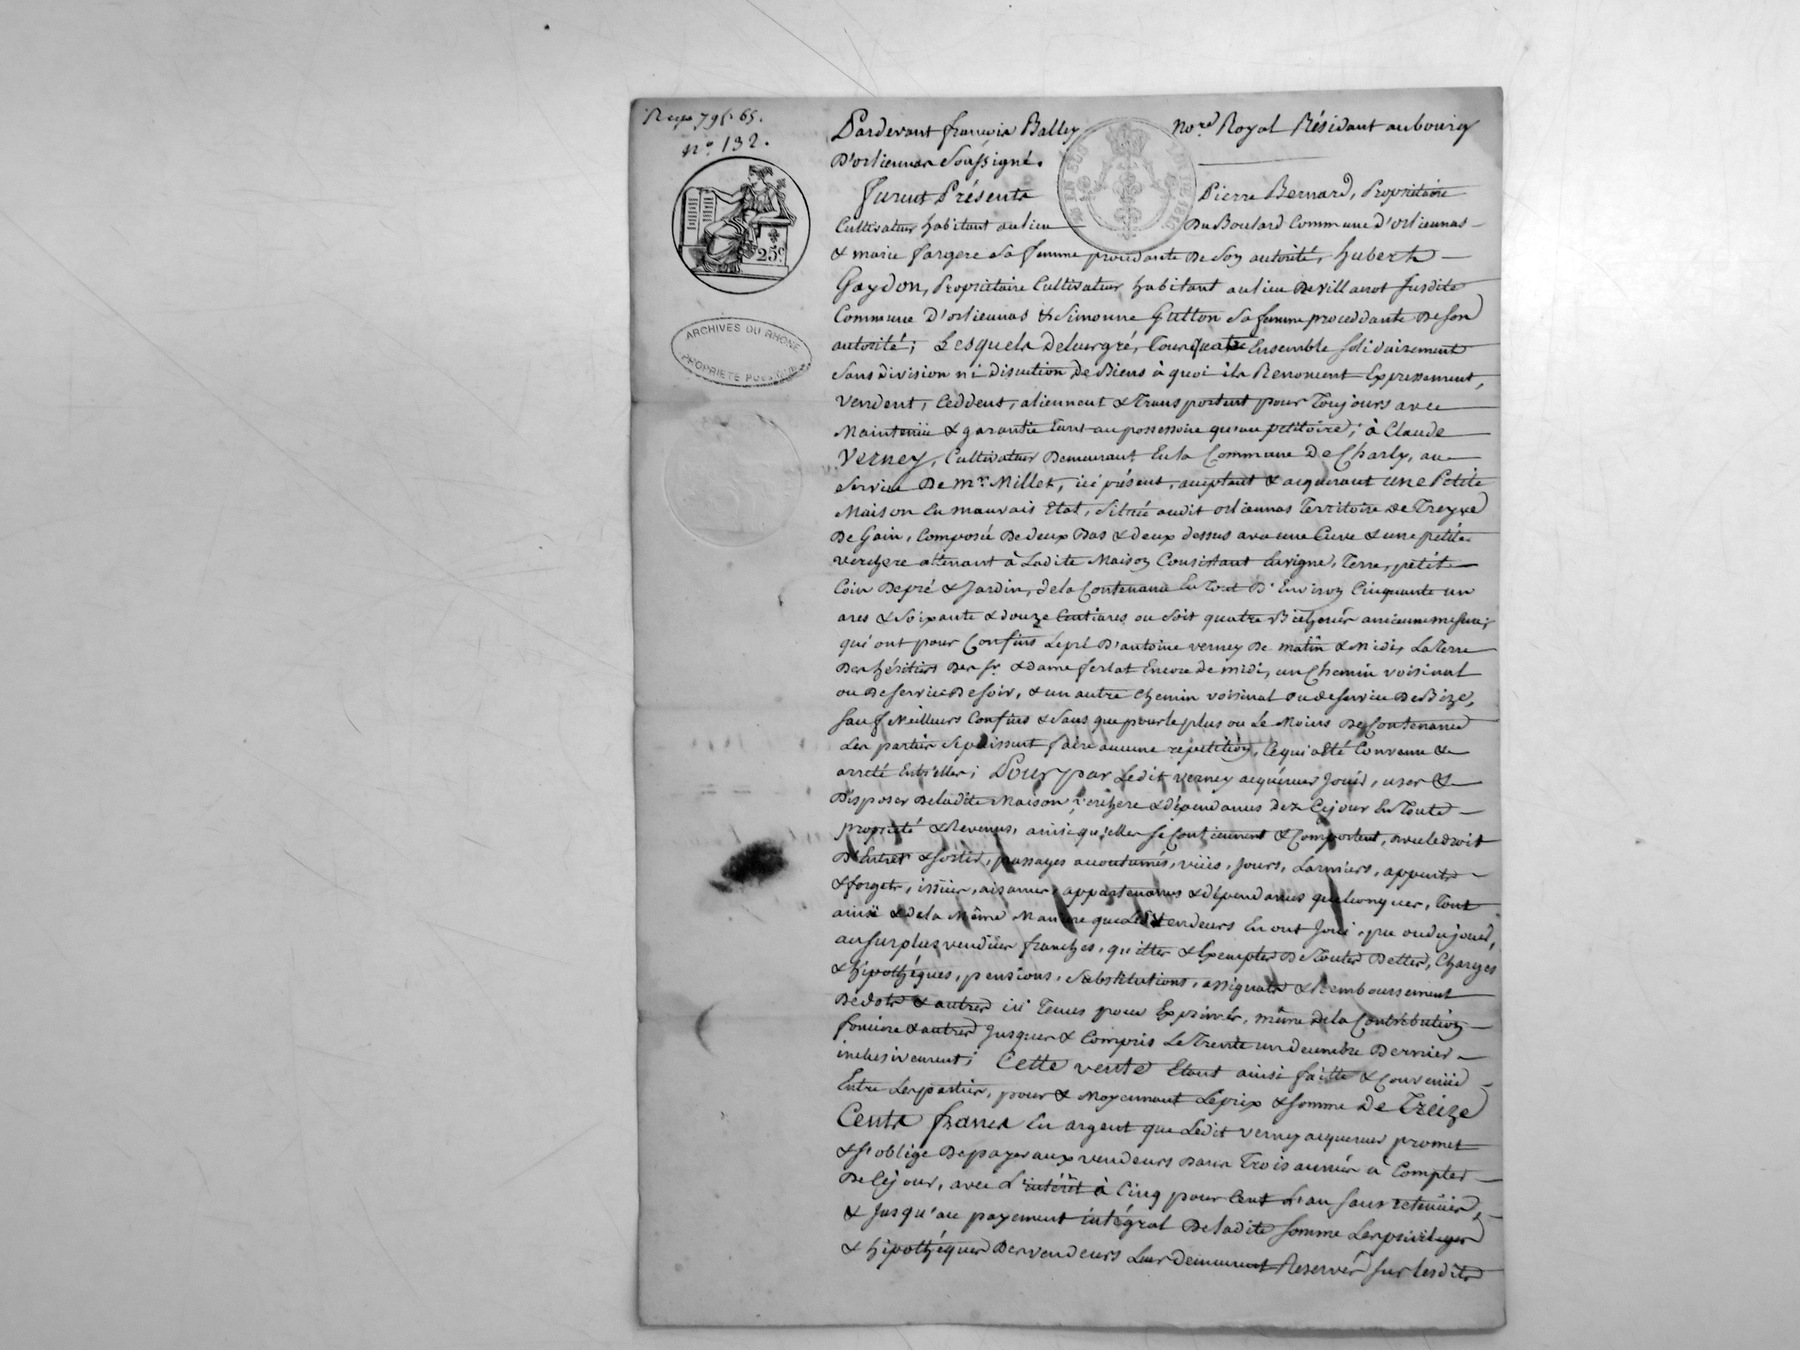 n.º 132.
25ᶜ
ARCHIVES DU RHONE
PROPRIETE PUBLIQUE
Pardevant françois Balley no.re Royal Résidant au bourg
D'orliennas Soussigné.
furent Présents Pierre Bernard, Propriétaire
Cultivateur habitant au lieu Du Boulard Commune d'orliennas
& marie fargere Sa femme procedante De Son autorité, hubert
Gaydon, Propriétaire Cultivateur habitant au lieu De Villanot Susdite
Commune D'orliennas & Simonne Gutton Sa femme proceddante De Son
autorité; Lesquels de leur gré, Tous quatre Ensemble Solidairement
Sans division ni discution De Biens à quoi ils Renoncent Expressement,
Vendent, Ceddent, aliennent & Transportent pour Toujours avec
Maintenüe & garantie Tant au possessoire qu'au petitoire; à Claude
Verney, Cultivateur Demeurant En la Commune De Charly, au
Service De mr. Millet, ici présent, acceptant & acquerant une Petite
Maison En mauvais Etat, Située audit orliennas Territoire de Treyve
De Gain, Composée De deux Bas & deux dessus avec une Cuve & une petite
verchere attenant à Ladite Maison Consistant En vigne, Terre, petit
Coin De pré & Jardin, de la Contenance En Tout D'Environ Cinquante un
ares & Soixante & douze Centiares ou Soit quatre Bicherées ancienne mesure;
qui ont pour Confins Le pré D'antoine verney De matin & Midi, La Terre
Des héritiers Des Sr. & dame ferlat Encore de midi, un Chemin voisinal
ou De Service De Soir, & un autre Chemin voisinal ou de Service De Bize,
Sauf Meilleurs Confins & Sans que pour le plus ou Le Moins De Contenance
Les parties Se puissent faire aucune répetition, Ce qui a Eté Convenu &
arreté Entr'elles; Pour par Ledit Verney acquéreur Jouir, user &
Disposer De ladite Maison, verchere & dépendances dez Ce jour En Toute
propriété & Revenus, ainsi qu'elles Se Contiennent & Comportent, avec le droit
D'Entrer & Sortir, passages accoutumés, vües, Jours, Larmiers, appents
& forgets, issües, aisances, appartenances & dépendances quelconques, Tout
ainsi & de la Même Maniere que Les Vendeurs En ont Joui, pu ou du jouir,
au Surplus vendües franches, quittes & Exemptes De Toutes Dettes, Charges
& hipothéques, pensions, Substitutions, assignats & Remboursement
De dots & autres ici Tenus pour Exprimés, même de la Contribution
fonciere & autres Jusques & Compris Le Trente un decembre Dernier
inclusivement; Cette vente Etant ainsi faitte & Convenüe
Entre Les parties, pour & Moyennant Le prix & Somme De Treize
Cents francs En argent que Ledit Verney acquereur promet
& S'oblige De payer aux vendeurs Dans Trois années à Compter
De Ce jour, avec L'intérêt à Cinq pour Cent L'an Sans retenüe,
& Jusqu'au payement intégral De ladite Somme Les privileges
& hipothéques Des vendeurs Leur demeurent Reservés Sur lesdits